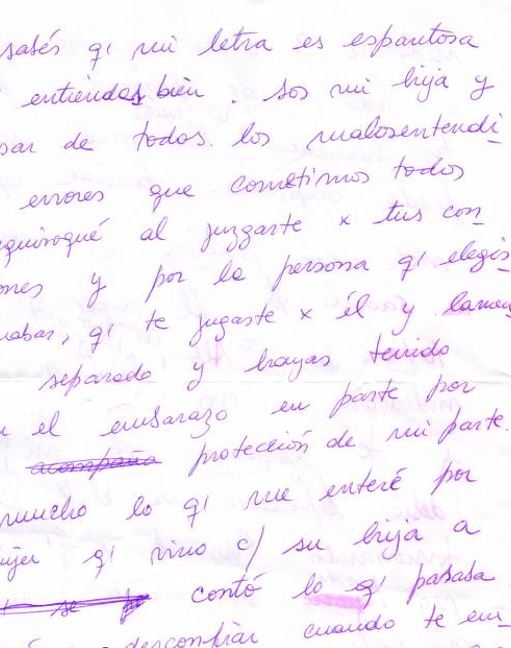 sabés q' mi letra es espantosa
entiendas bien. Sos mi hija y
sar de todos los malosentendi_
errores que cometimos todos
quivoqué al juzgarte x tus con_
ones y por la persona q' elegis_
nabas, q' te jugaste x él y lamen_
separado y hayas tenido
el embarazo en parte por
acompaña protección de mi parte.
mucho lo q' me enteré por
ujer q' vino c/ su hija a
se contó lo q' pasaba
desconfiar cuando te em_